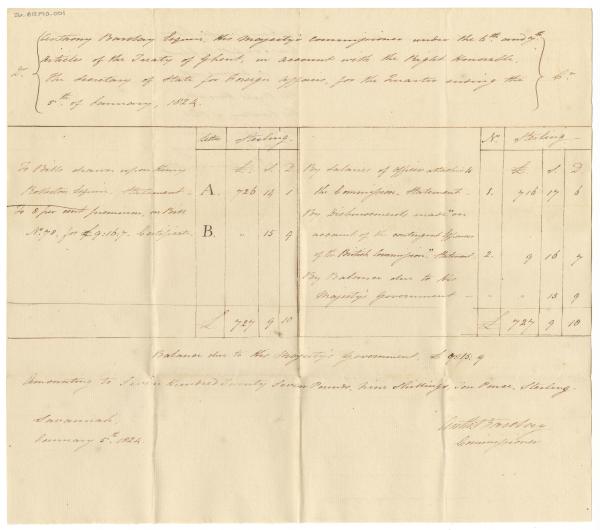 Anthony Barclay Esquire, His Majesty's Commissioner under the 6th and 7th
Articles of the Treaty of Ghent, in account with the Right Honorable
Dr.
The Secretary of State for Foreign Affairs, for the Quarter ending the
Cr.
5th of January, 1824.
Letter Sterling
£. S. D
To Bills drawn upon Henry
Rolleston Esquire. Statement A. 726 14 1
To 8 per cent premium, on Bill
No. 78, for £9:16.7. Certificate B. " 15 9
£ 727 9 10
No. Sterling
£. S. D
By Salaries of Officers attached to
the Commission. Statement 1. 716 17 6
By Disbursements made "on
account of the contingent Expences
of the British Commission." Statement 2. 9 16 7
By Balance due to His
Majesty's Government " " 15 9
£ 727 9 10
Balance due to His Majesty's Government, £ 0:15.9
Amounting to Seven Hundred Twenty Seven Pounds, nine Shillings, Ten Pence, Sterling.
Savannah,
January 5th 1824
Anth. Barclay
Commissioner